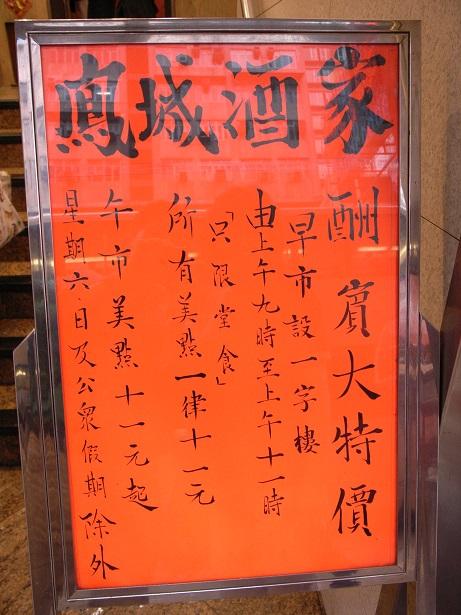 鳳城酒家
酬賓大特價
早市設一字樓
由上午九時至上午十一時
「只限堂食」
所有美點一律十一元
午市美點十一元起
星期六·日及公眾假期除外